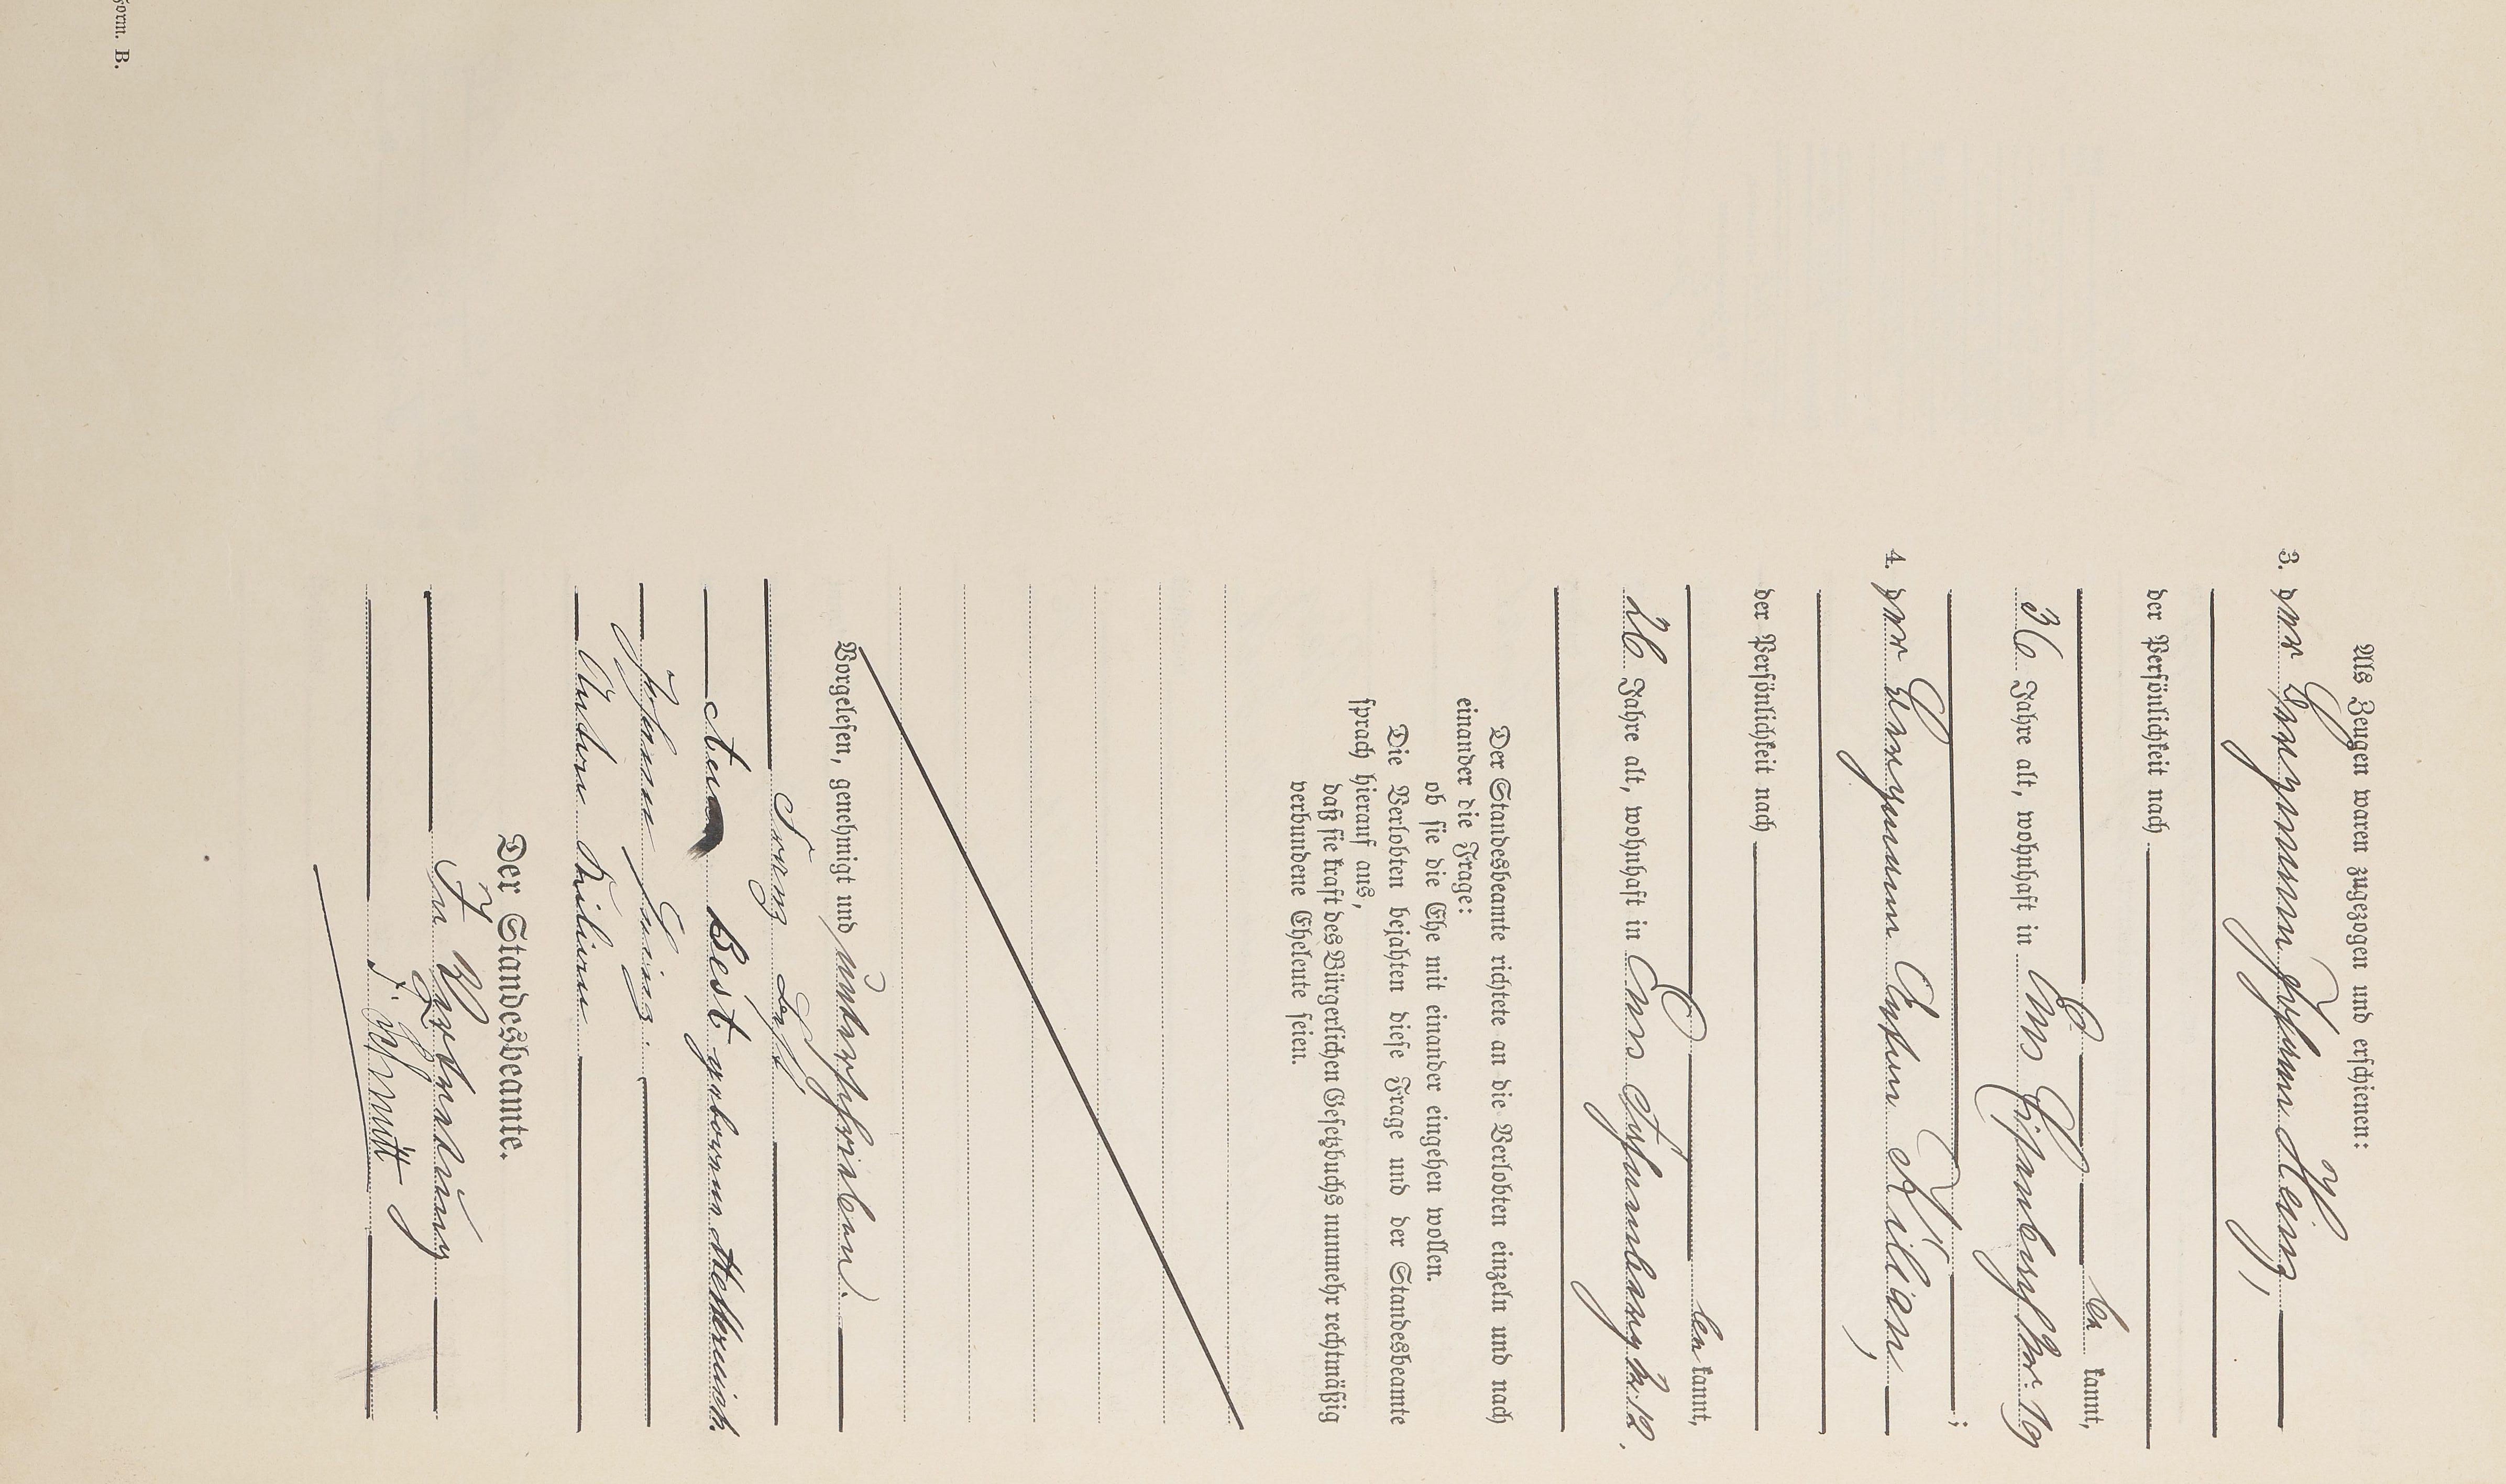 Als Zeugen waren zugezogen und erschienen:
3. der Bergmann Johann Heinz,
der Persönlichkeit nach
be kannt,
36 Jahre alt, wohnhaft in Ems 19
4. der Bergmann Anton Kilian,
der Persönlichkeit nach
be kannt,
26 Jahre alt, wohnhaft in Ems 12.
Der Standesbeamte richtete an die Verlobten einzeln und nach
einander die Frage:
ob sie die Ehe mit einander eingehen wollen.
Die Verlobten bejahten diese Frage und der Standesbeamte
sprach hierauf aus,
daß sie kraft des Bürgerlichen Gesetzbuchs nunmehr rechtmäßig
verbundene Eheleute seien.
Vorgelesen, genehmigt und unterschrieben.
Best geborene
Johann Heinz.
Anton Kilian
Der Standesbeamte.
In Vertretung
F. Schmitt
Form. B.